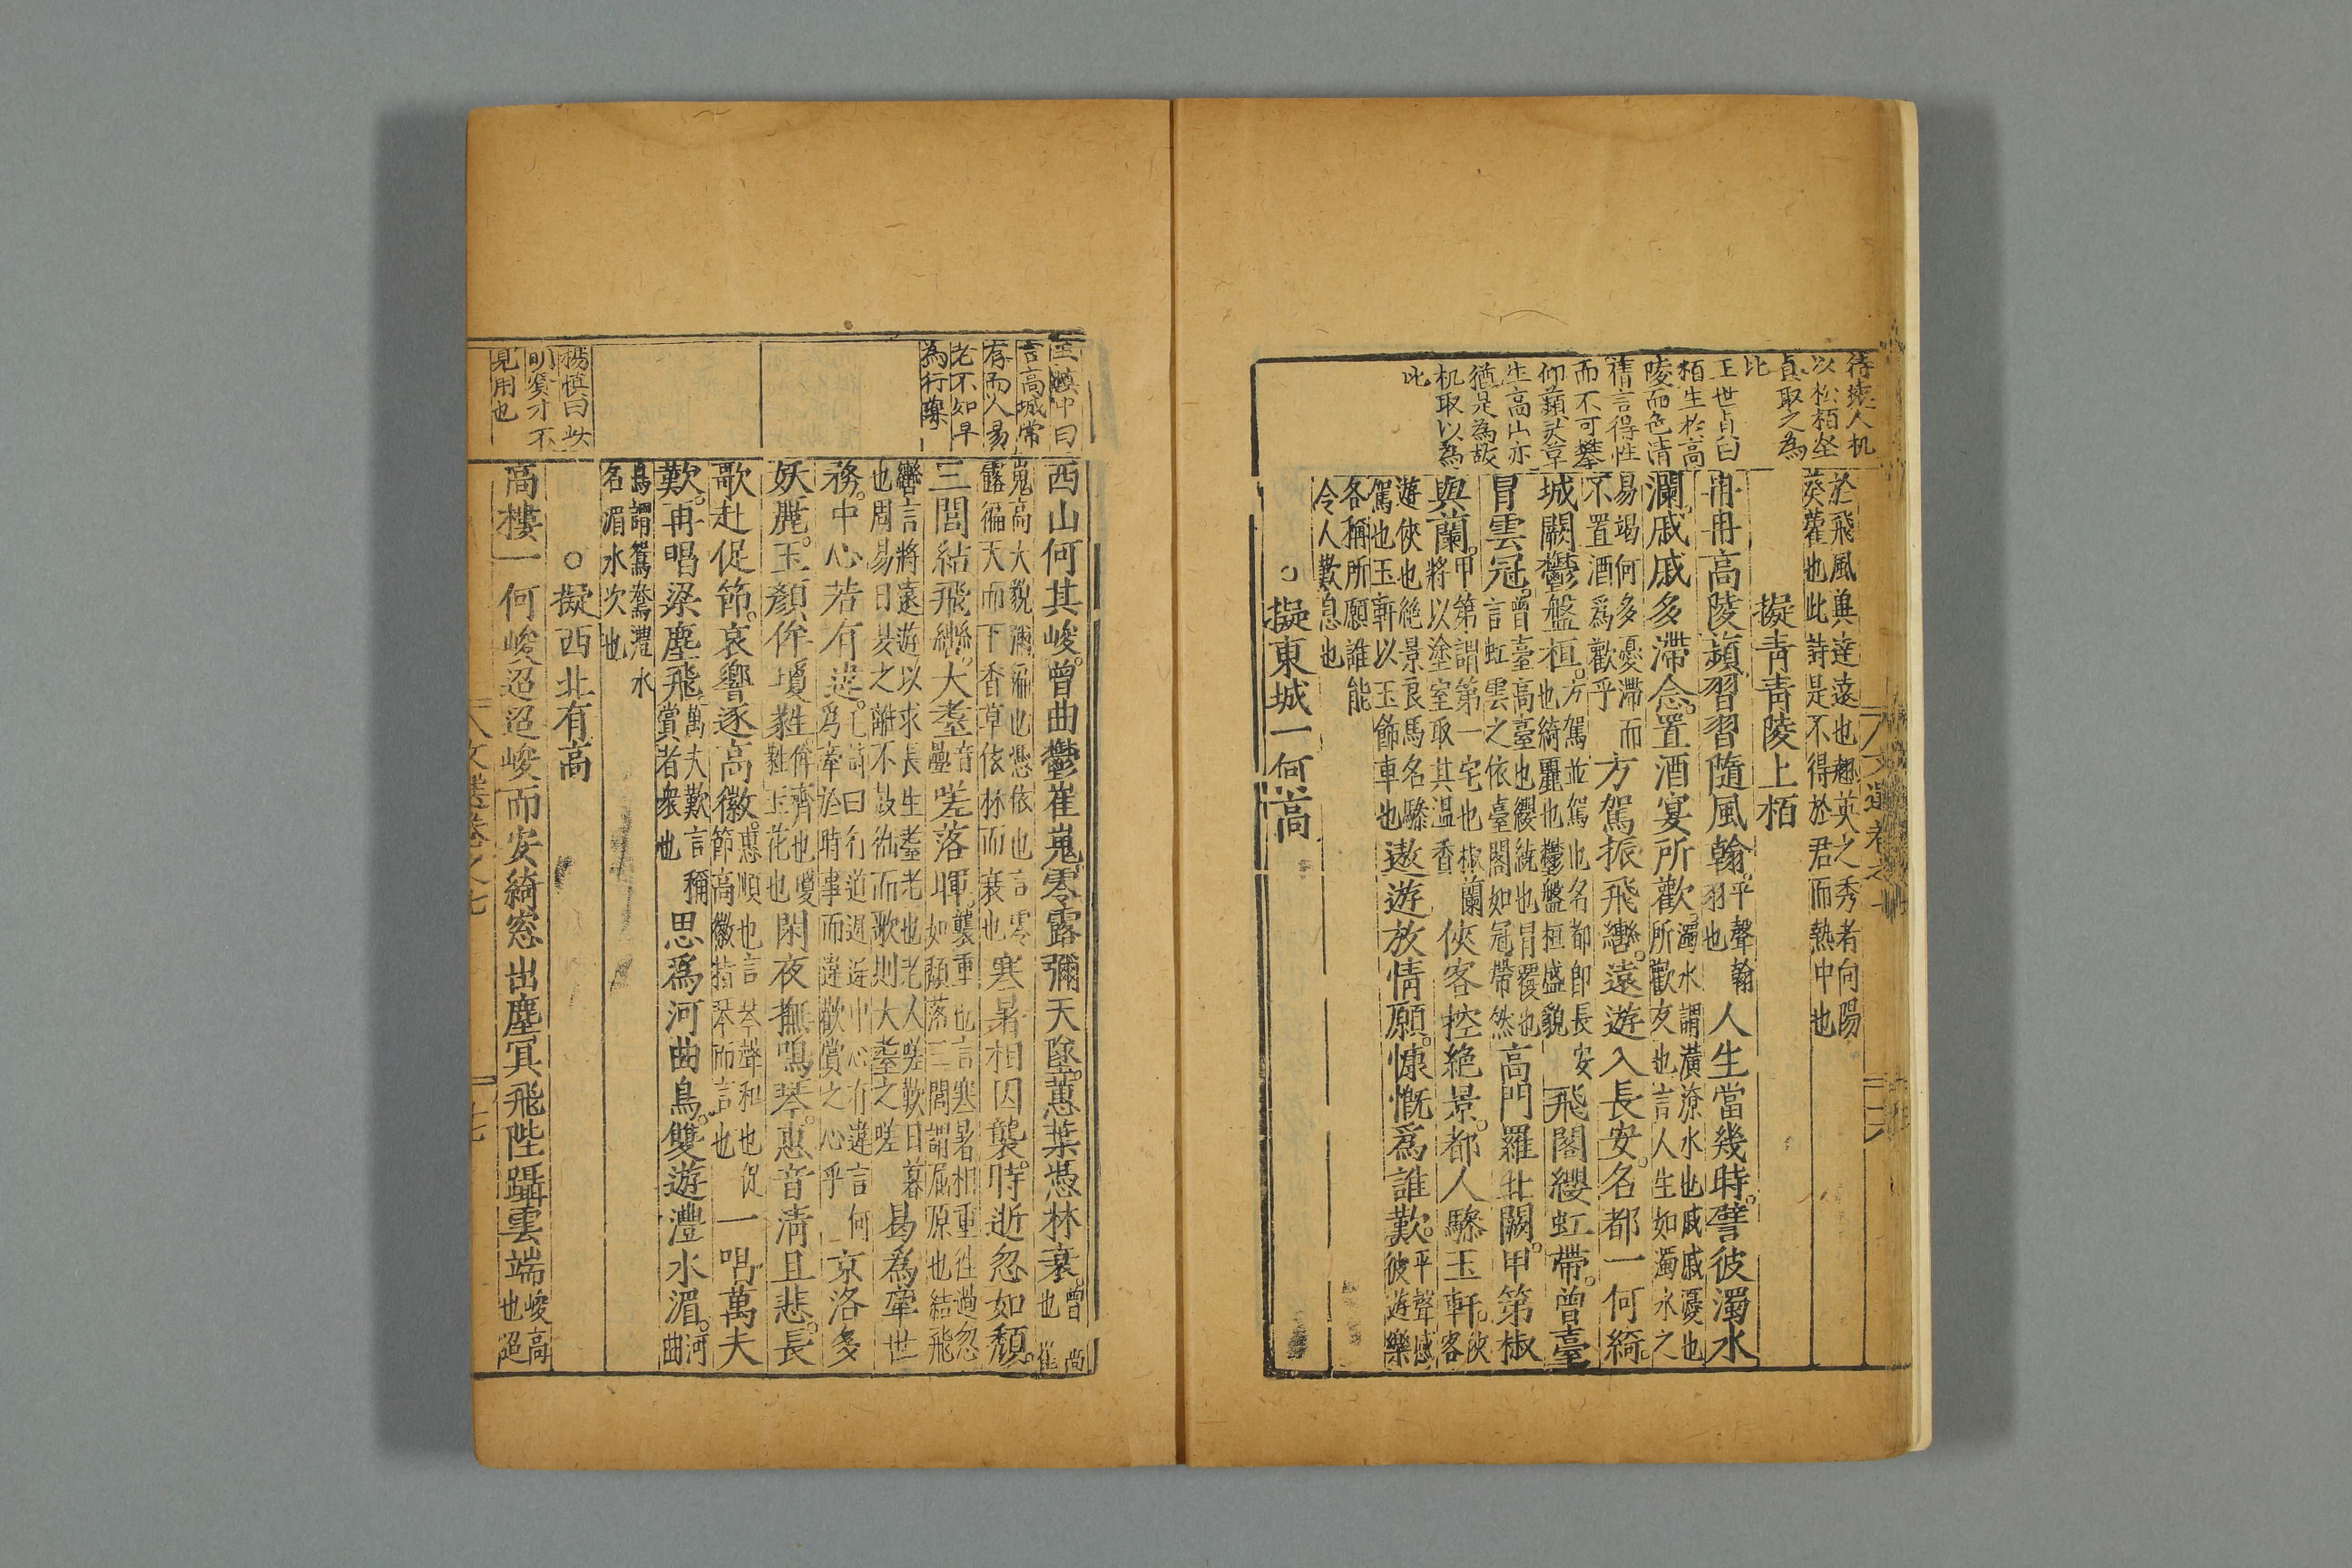 待堯人机
以松栢坐
貞取之為
比
王世貞曰
栢生於高
陵而色清
猜言得性
而不可攀
仰蘋芡草
生高山亦
猶是為故
机取以為
此
於飛風與逹遠也翹英之秀者向陽
葵藿也此詩是不得於君而熱中也
擬青青陵上栢
冉冉高陵蘋習習隨風翰平聲翰
羽也人生當幾時譬彼濁水
瀾戚戚多滯念置酒宴所歡濁水謂潢潦水也戚戚憂也
所歡友也言人生如濁水之
易竭何多憂滯而
不置酒爲歡乎方駕振飛轡遠遊入長安名都一何綺
城闕鬱盤桓方駕並駕也名都即長安
也綺麗也鬱盤桓盛貌飛閣纓虹帶曾臺
冒雲冠曾臺高臺也纓統也冒覆也
言虹雲之依臺閣如冠帶然高門羅北闕甲第椒
與蘭甲第謂第一宅也椒蘭
將以塗室取其温香俠客控絶景都人驂玉軒俠客
遊俠也絶景良馬名驂
駕也玉軒以玉飾車也遨遊放情願慷慨爲誰歎平聲感
彼遊樂
各稱所願誰能
令人歎息也
○擬東城一何高
文選卷之七
二十六
王慎中曰
言高城常
存而人易
老不如早
為行樂
楊慎曰此
明賢才不
見用也
西山何其峻曾曲鬱崔嵬零露彌天墜蕙葉憑林衰曾
也尚崔
嵬高大貌彌徧也憑依也言零
露徧天而下香草依林而衰也寒暑相因襲時逝忽如頹
三閭結飛轡大耋嗟落暉耋音襲重也言寒暑相重往過忽
如頹落三閭謂屈原也結飛
轡言將遠遊以求長生耋老也老人嗟歎日暮
也周易曰昃之離不鼓缶而歌則大耋之嗟曷爲牽世
務中心若有違毛詩曰行道遲遲中心有違言何
爲牽於時事而違歡賞之心乎京洛多
妖麗玉顏侔瓊蕤侔齊也瓊
蕤玉花也閑夜撫鳴琴惠音淸且悲長
歌赴促節哀響逐高徽惠順也言琴聲和也促
節高徽指琴而言也一唱萬夫
歎再唱梁塵飛萬夫歎言稱
賞者衆也思爲河曲鳥雙遊灃水湄河
曲
鳥謂鴛鴦灃水
名湄水次也
○擬西北有高
高樓一何峻迢迢峻而安綺窓出塵冥飛陛躡雲端峻高
也迢
文選卷之七